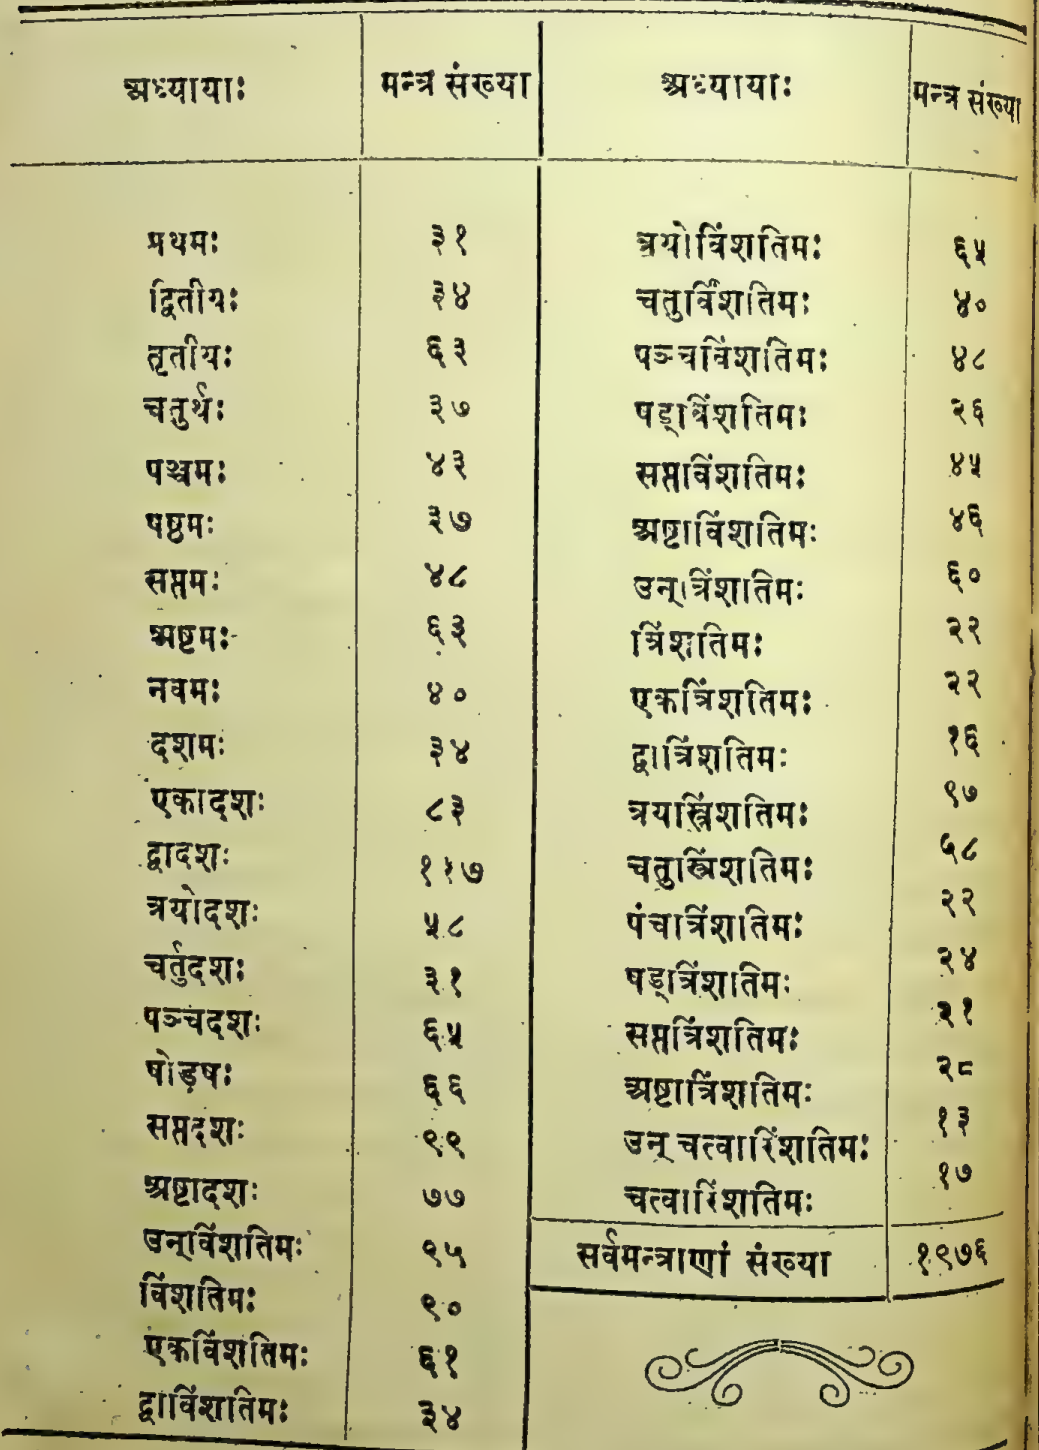 अध्यायाः मन्त्र संख्या अध्यायाः मन्त्र संख्या
प्रथमः ३१ त्रयोविंशतिमः ६५
द्वितीयः ३४ चतुर्विंशतिमः ४०
तृतीयः ६३ पञ्चविंशतिमः ४८
चतुर्थः ३७ षड्विंशतिमः २६
पञ्चमः ४३ सप्तविंशतिमः ४५
षष्ठमः ३७ अष्टाविंशतिमः ४६
सप्तमः ४८ उन्त्रिंशतिमः ६०
अष्टमः ६३ त्रिंशतिमः २२
नवमः ४० एकत्रिंशतिमः २२
दशमः ३४ द्वात्रिंशतिमः १६
एकादशः ८३ त्रयास्त्रिंशतिमः ९७
द्वादशः ११७ चतुस्त्रिंशतिमः ५८
त्रयोदशः ५८ पंचात्रिंशतिमः २२
चर्तुदशः ३१ षड्त्रिंशतिमः २४
पञ्चदशः ६५ सप्तत्रिंशतिमः २१
षोड़षः ६६ अष्टात्रिंशतिमः २८
सप्तदशः ९९ उन् चत्वारिंशतिमः १३
अष्टादशः ७७ चत्वारिंशतिमः १७
उन्विंशतिमः ९५ सर्वमन्त्राणां संख्या १९७६
विंशतिमः ९०
एकविंशतिमः ६१
द्वाविंशतिमः ३४